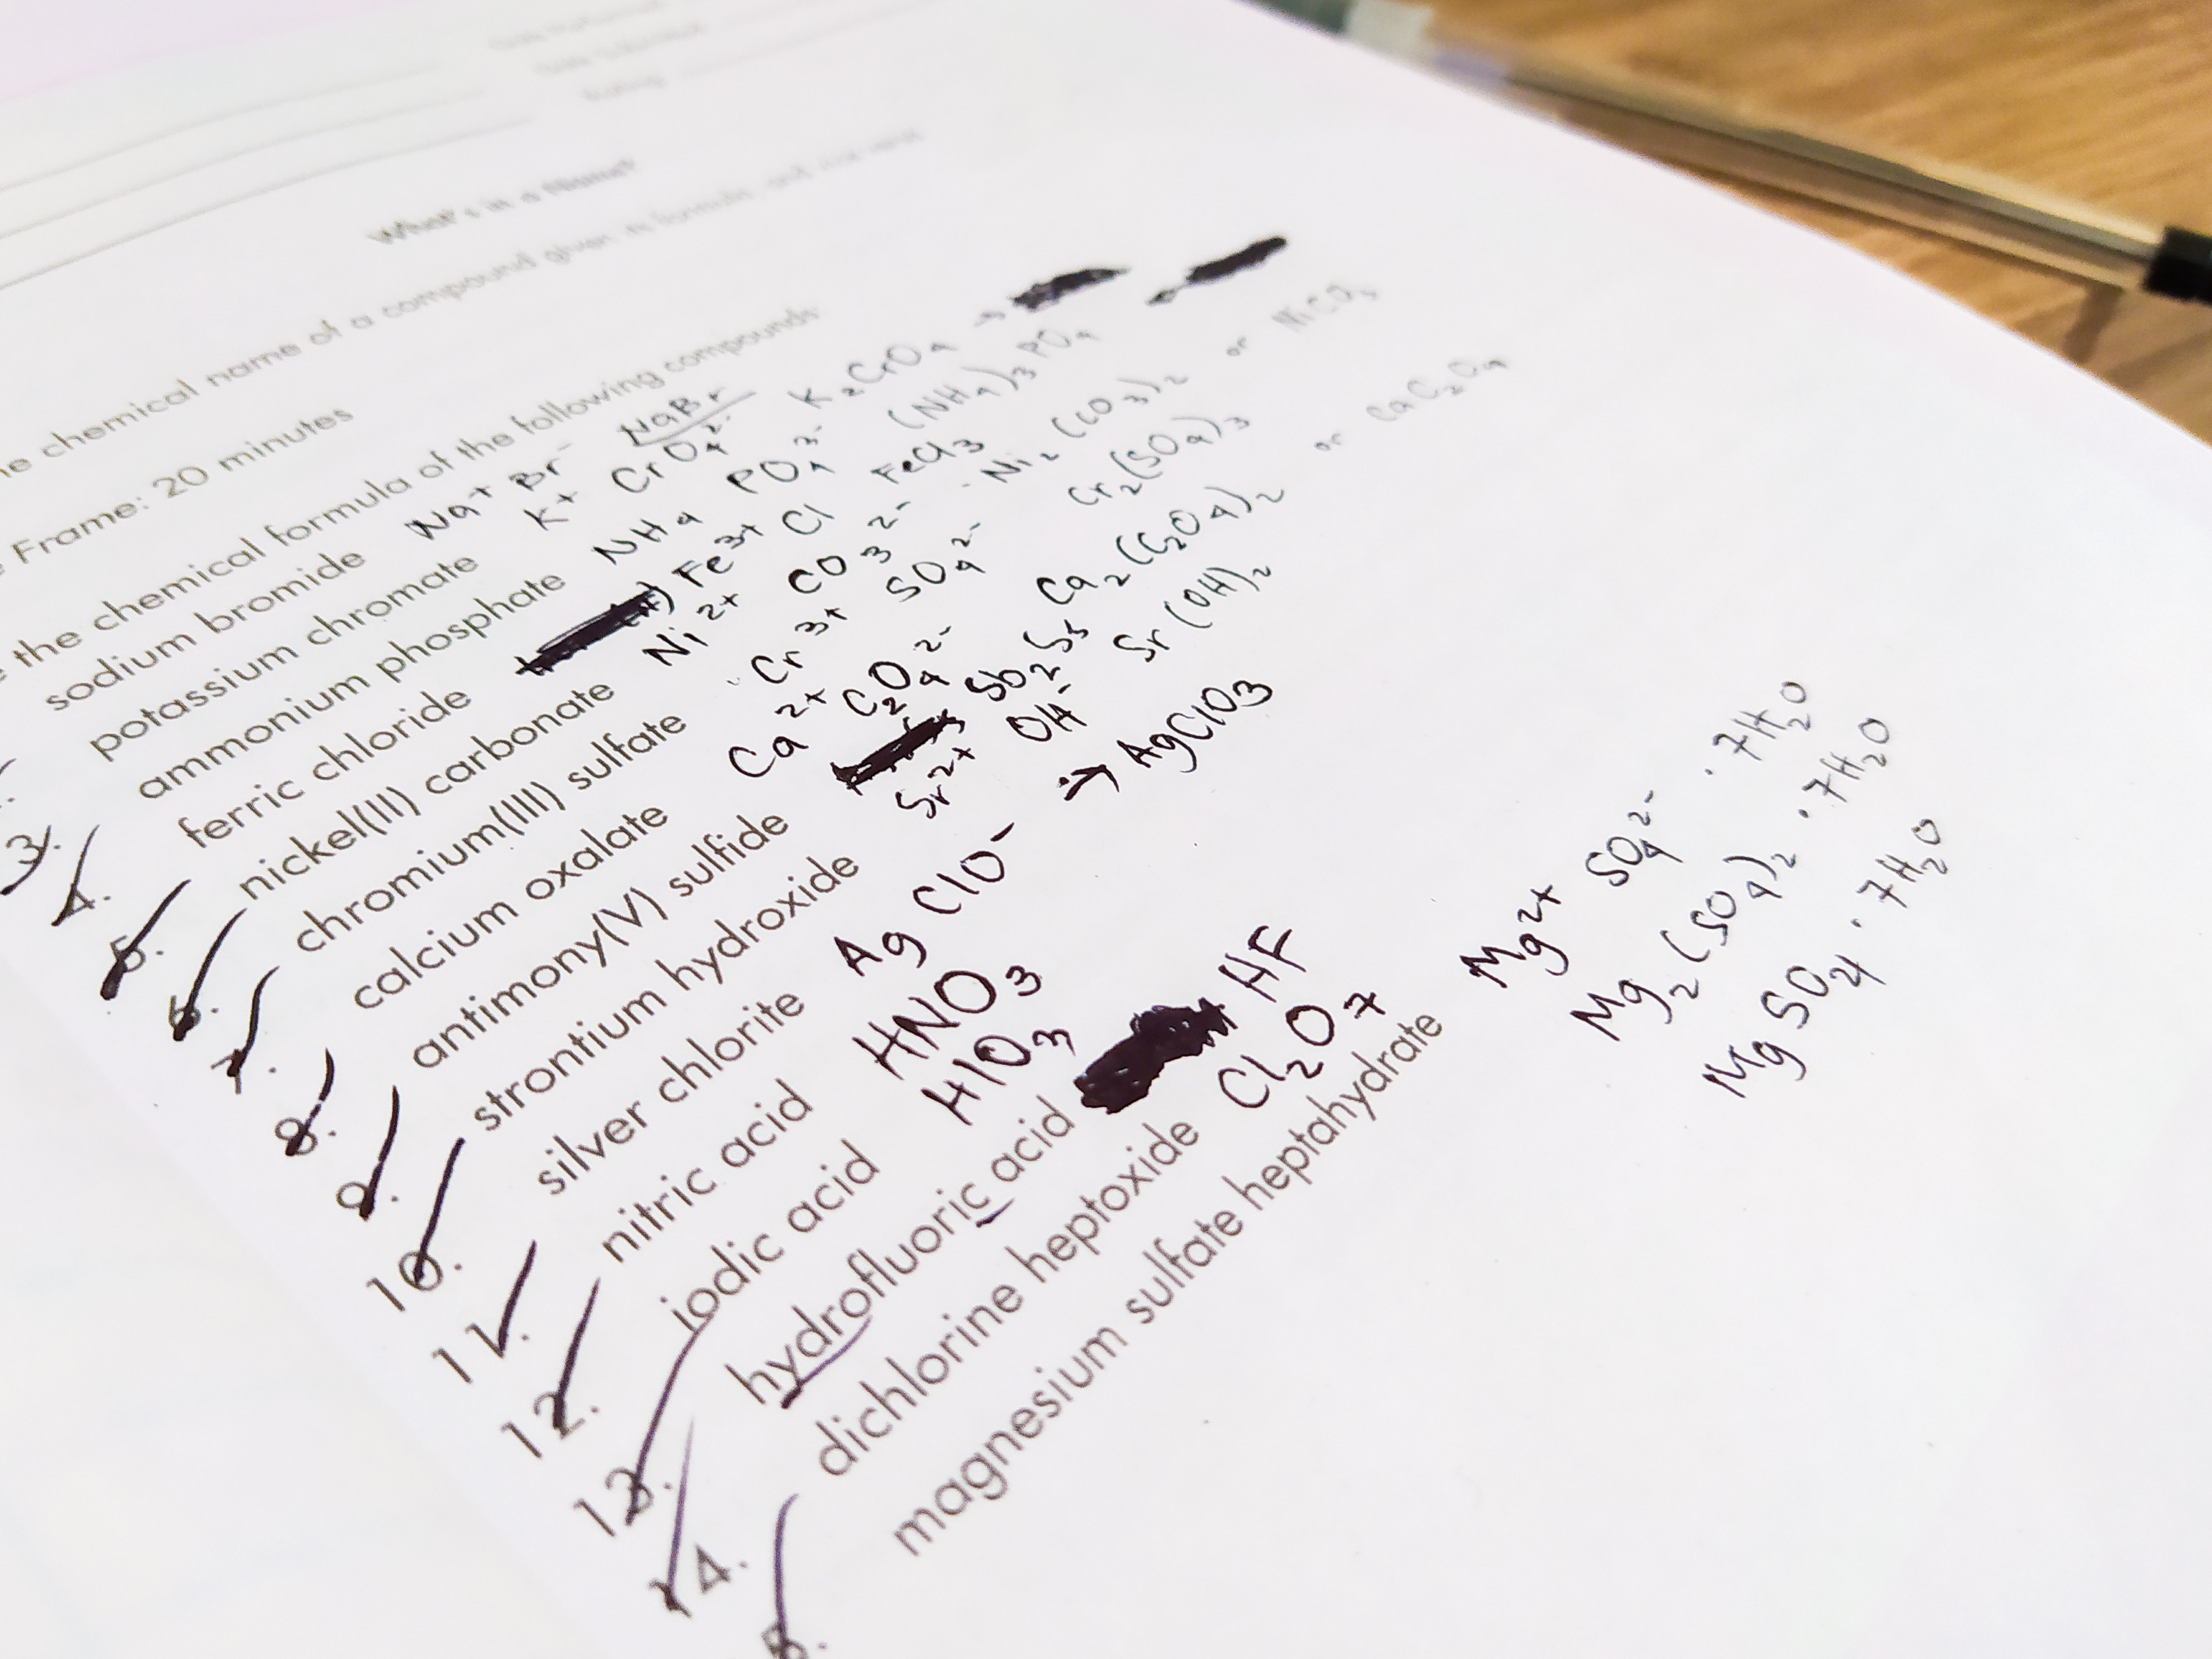 What's in a Name?
he chemical name of a compound given its formula, and vice versa
Frame: 20 minutes
the chemical formula of the following compounds:
sodium bromide Na+ Br- NaBr
potassium chromate K+ CrO4 2- K2CrO4 →
3. ammonium phosphate NH4 PO4 3- (NH4)3PO4
4. ferric chloride Fe3+ Cl FeCl3
5. nickel(II) carbonate Ni2+ CO3 2- Ni2(CO3)2 or NiCO3
6. chromium(III) sulfate Cr3+ SO4 2- Cr2(SO4)3
7. calcium oxalate Ca2+ C2O4 2- Ca2(C2O4)2 or CaC2O4
8. antimony(V) sulfide Sb2S5
9. strontium hydroxide Sr2+ OH- Sr(OH)2
10. silver chlorite Ag ClO- → AgClO3
11. nitric acid HNO3
12. iodic acid HIO3
13. hydrofluoric acid HF
14. dichlorine heptoxide Cl2O7
magnesium sulfate heptahydrate Mg2+ SO4 2- · 7H2O
Mg2(SO4)2 · 7H2O
MgSO4 · 7H2O